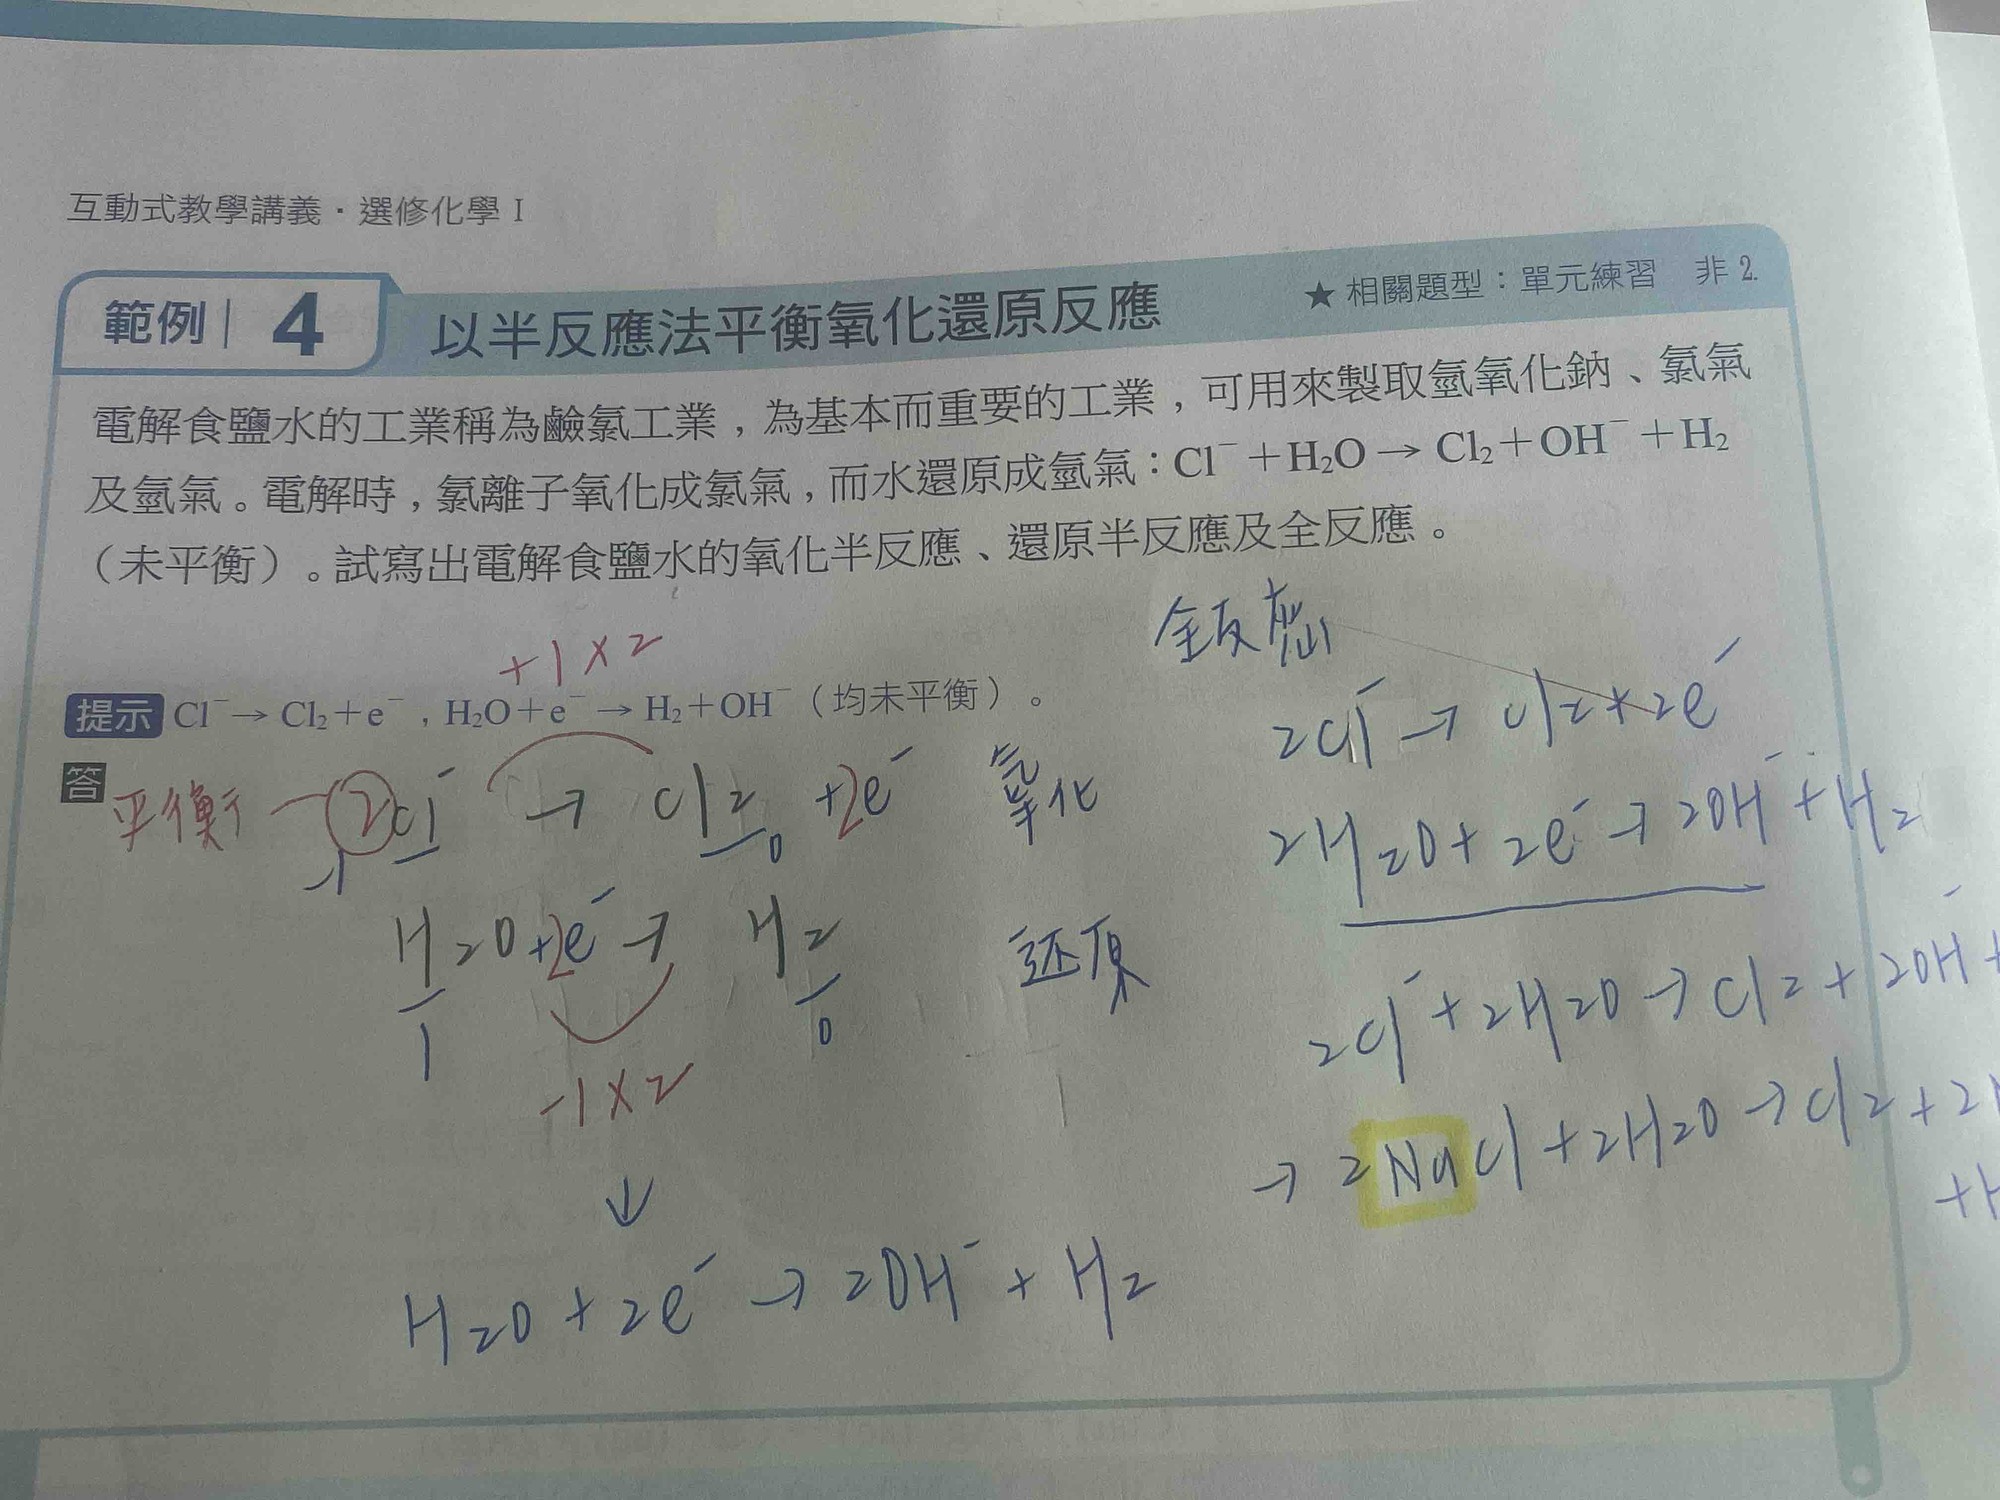 互動式教學講義・選修化學 I
範例 4 以半反應法平衡氧化還原反應 ★相關題型：單元練習 非 2.
電解食鹽水的工業稱為鹼氯工業，為基本而重要的工業，可用來製取氫氧化鈉、氯氣
及氫氣。電解時，氯離子氧化成氯氣，而水還原成氫氣：Cl⁻＋H₂O→Cl₂＋OH⁻＋H₂
（未平衡）。試寫出電解食鹽水的氧化半反應、還原半反應及全反應。
+1×2
提示 Cl⁻→Cl₂＋e⁻，H₂O＋e⁻→H₂＋OH⁻（均未平衡）。
答 平衡 2Cl⁻ → Cl₂ +2e⁻ 氧化
-1 0
H₂O+2e⁻ → H₂ 还原
1 0
-1×2
↓
H₂O + 2e⁻ → 2OH⁻ + H₂
全反應
2Cl⁻ → Cl₂+2e⁻
2H₂O+2e⁻→2OH⁻+H₂
2Cl⁻+2H₂O→Cl₂+2OH⁻+
→ 2NaCl+2H₂O→Cl₂+2
+H